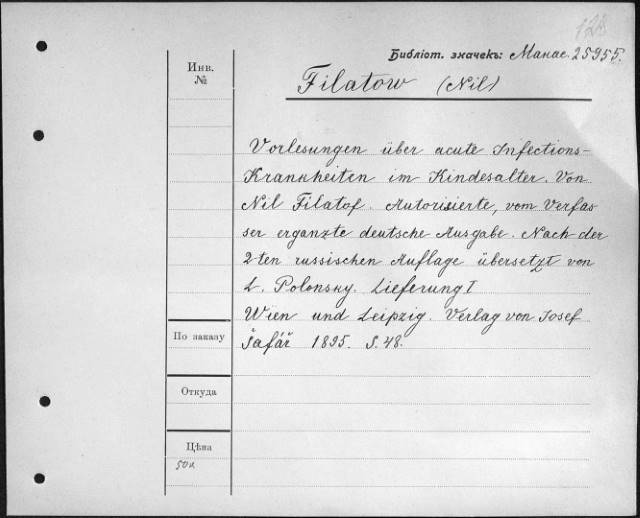 128
Библіот. значекъ: Манас. 25955.
Инв.
№
Filatow (Nil)
Vorlesungen über acute Infections-
Krankheiten im Kindesalter. Von
Nil Filatof. Autorisierte, vom Verfas
ser erganzte deutsche Ausgabe. Nach der
2-ten russischen Auflage übersetzt von
L. Polonsky. Lieferung I
Wien und Leipzig. Verlag von Josef
Šafář 1895. S. 48.
По заказу
Откуда
Цѣна
50к